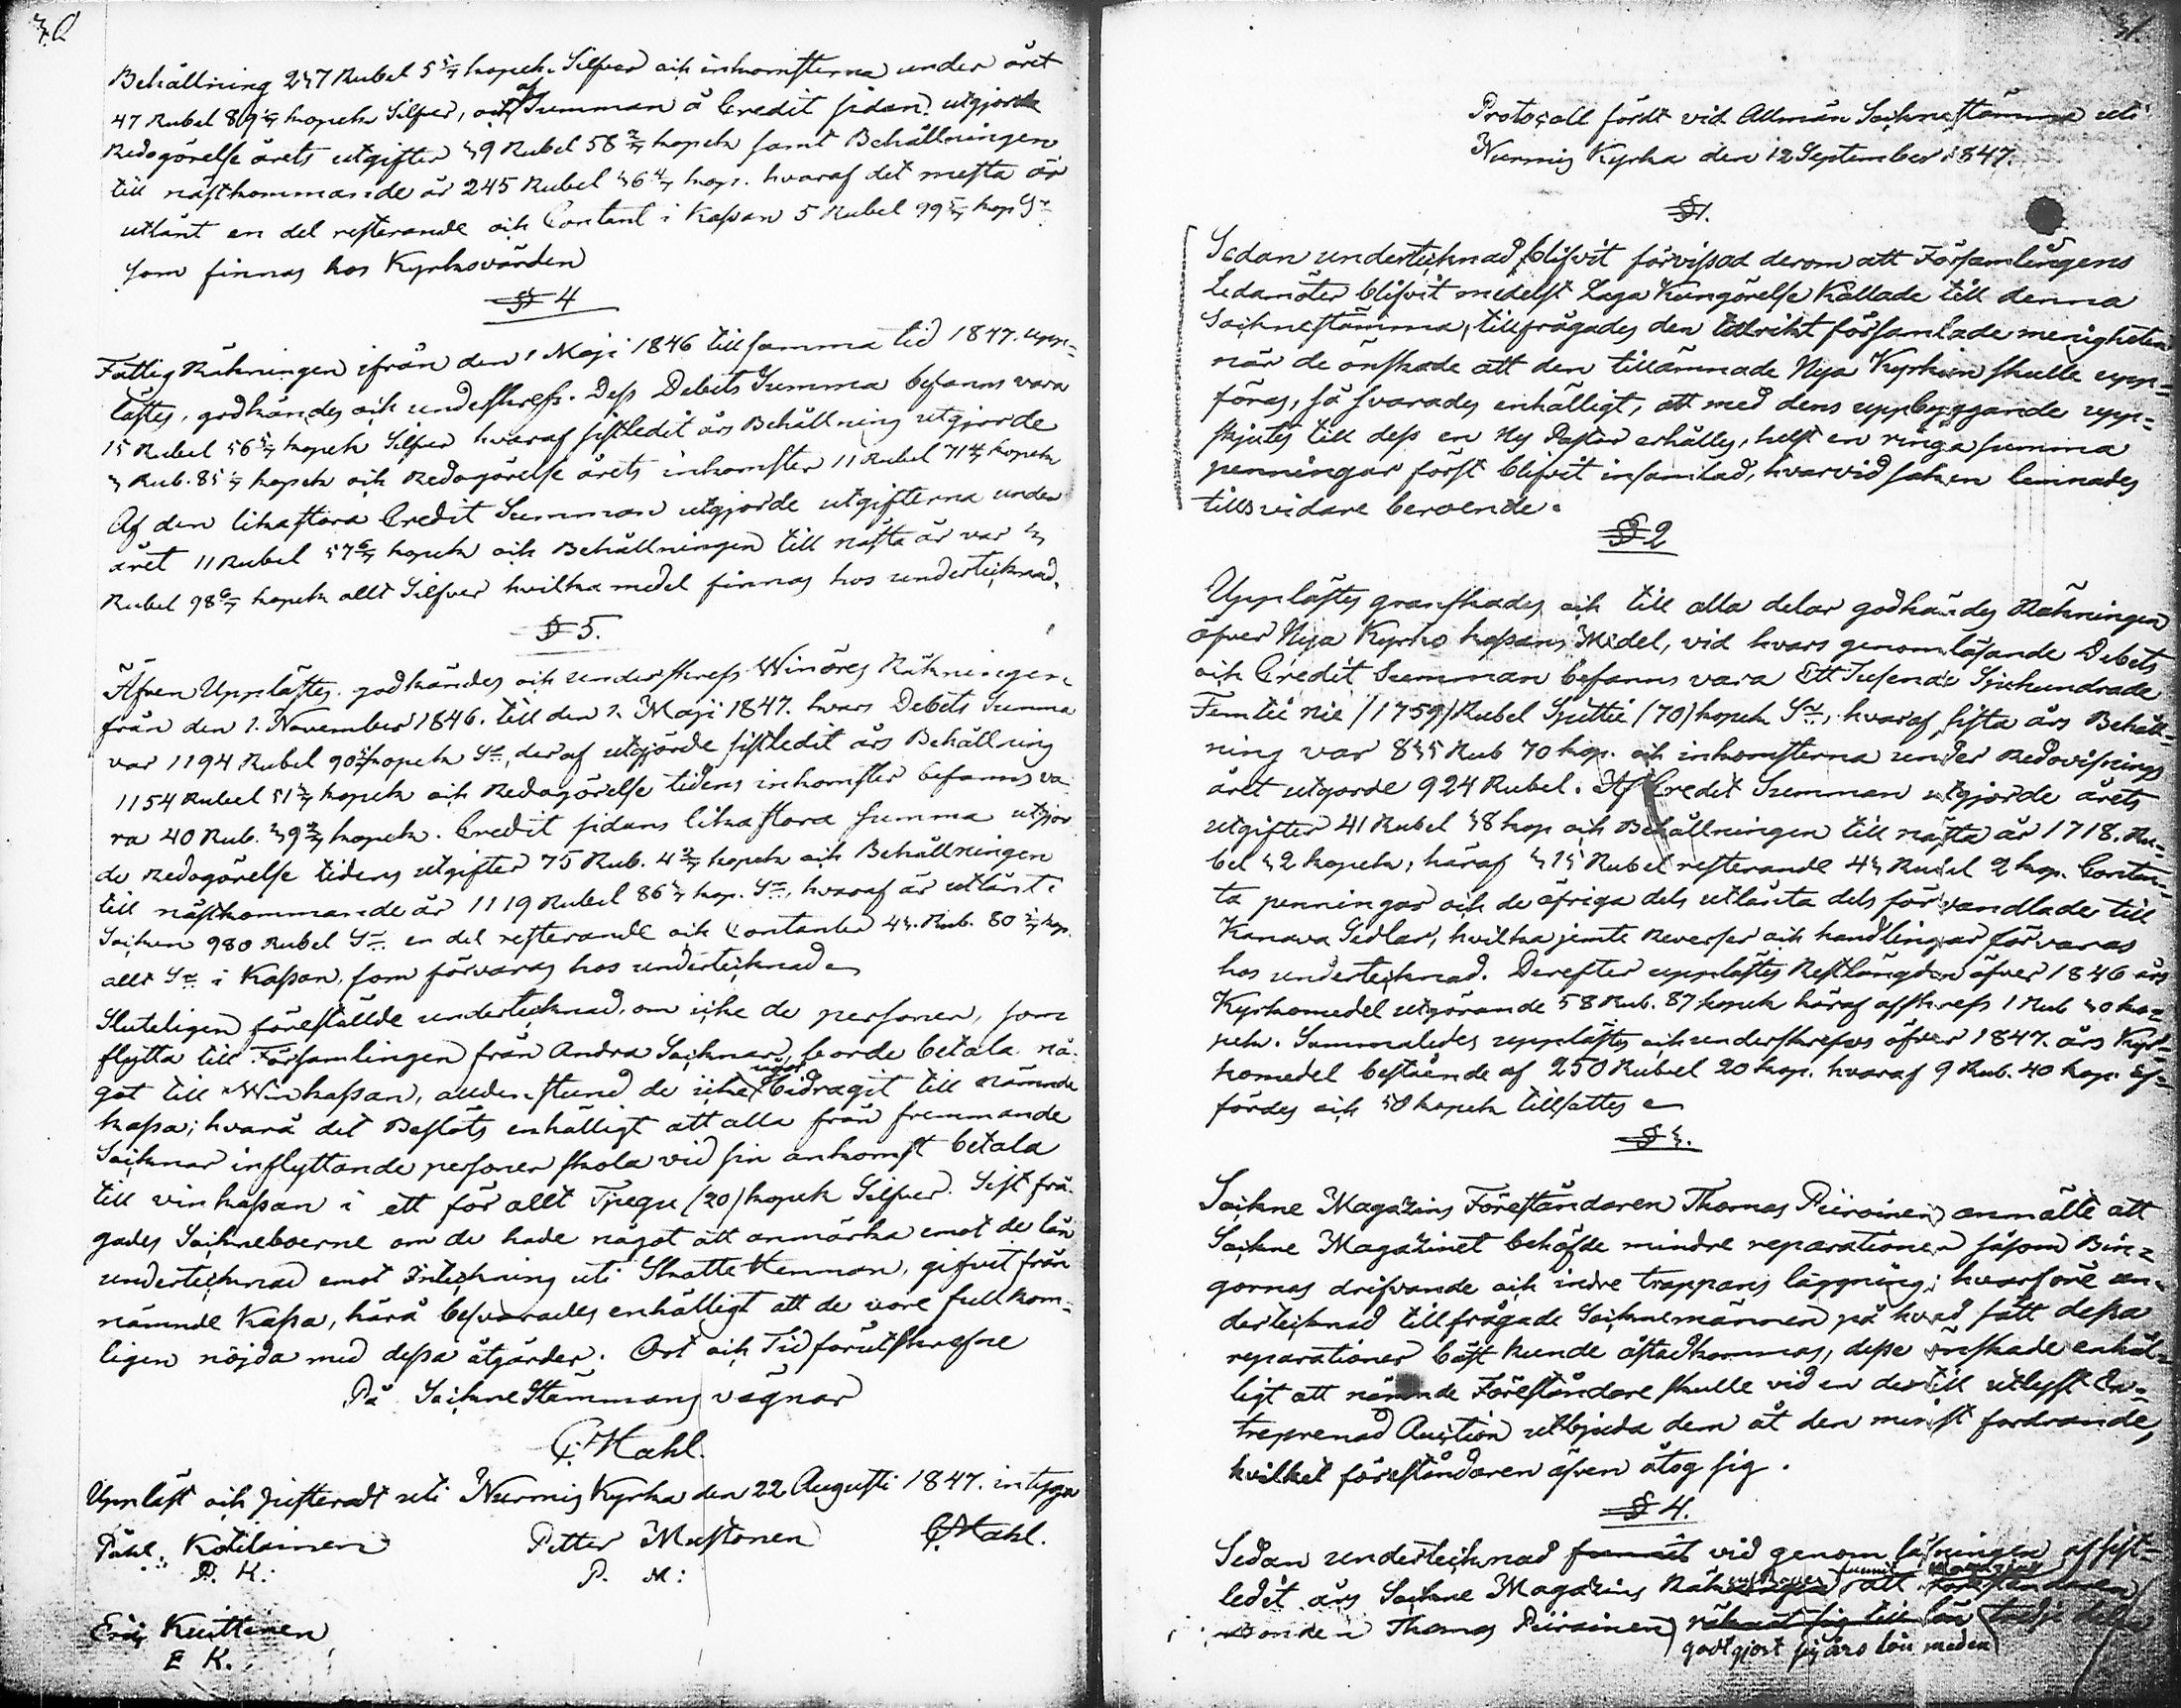 30
Behållning 247 Rubel 5 5/7 kopek Silfver och inkomsterna under året
47 Rubel 89 1/7 kopek Silfver, och af Summan å Credit sidan utgjorde
Redogörelse årets utgifter 49 Rubel 58 2/7 kopek samt Behållningen
till nästkommande år 245 Rubel 36 4/7 kop. hvaraf det mesta är
utlånt en del resterande och Contant i Kassan 5 Rubel 99 5/7 kop Sr
som finnas hos Kyrkovärden
§ 4
Fattig Räkningen ifrån den 1 Maji 1846 till samma tid 1847. upp-
lästes, godkändes och underskrefs. Dess Debets Summa befanns vara
15 Rubel 56 5/7 kopek Silfver hvaraf sistledit års Behållning utgjorde
3 Rub. 85 1/7 kopek och Redogörelse årets inkomster 11 Rubel 71 4/7 kopek
Af den lika stora Credit Summan utgjorde utgifterna under
året 11 Rubel 57 6/7 kopek och Behållningen till nästa år var 3
Rubel 98 6/7 kopek allt Silfver hvilka medel finnas hos undertecknad.
§ 5.
Äfven Upplästes godkändes och underskrefs Winöres Räkningen
från den 1. November 1846. till den 1. Maji 1847. hvars Debets Summa
var 1194 Rubel 90 5/7 kopek Sr, deraf utgjorde sistledit års Behållning
1154 Rubel 51 3/7 kopek och Redogörelse tidens inkomster befanns va
ra 40 Rub. 39 2/7 kopek. Credit sidans lika stora summa utgjor
de Redogörelse tidens utgifter 75 Rub. 4 2/7 kopek och Behållningen
till nästkommande år 1119 Rubel 86 3/7 kop. Sr, hvaraf är utlånt i
Socknen 980 Rubel Sr en del resterande och Contanter 43. Rub. 80 2/7 kop.
allt Sr i Kassan, som förvaras hos undertecknad
Sluteligen föreställde undertecknad, om icke de personer, som
flytta till Församlingen från Andra Socknar, borde betala nå-
got till Winkassan, alldenstund de icke något bidragit till nämnde
kassa; hvarå det Beslöts enhälligt att alla från fremmande
Socknar inflyttande personer skola vid sin ankomst betala
till vinkassan i ett för allt Tjugu (20) kopek Silfver. Sist frå-
gades Sockneboerne om de hade något att anmärka emot de lån
undertecknad emot Inteckning uti Skatte Hemman, gifvit från
nämnde Kassa, härå besvarades enhälligt att de vore fullkom-
ligen nöjda med dessa åtgärder. Ort och Tid förutskrefne
På Sockne Stämmans vägnar
C: Stahl.
Uppläst och Justeradt uti Nurmis Kyrka den 22 Augusti 1847. intyga
Påhl Kotilainen Petter Mustonen C: Stahl.
P. K: P. M:
Eric Kuittinen
E K.
31.
Protocoll fördt vid Allmän Sockne stämma uti
Nurmis Kyrka den 12 September 1847.
§ 1.
Sedan undertecknad, blifvit förvissad derom att Församlingens
Ledamöter blifvit medelst Laga Kungörelse Kallade till denna
Socknestämma, tillfrågades den talrikt församlade menigheten
när de önskade att den tillämnade Nya Kyrkan skulle upp-
föras, så svarades enhälligt, att med dens uppbyggande upp-
skjutes till dess en Ny Pastor erhålles, helst en ringa summa
penningar först blifvit insamlad, hvarvid saken lemnades
tillsvidare beroende.
§ 2
Upplästes granskades och till alla delar godkändes Räkningen
öfver Nya Kyrko kassans Medel, vid hvars genomläsande Debets
och Credit Summan befanns vara Ett Tusende Sjuhundrade
Femtie nie (1759) Rubel Sjuttie (70) kopek Sr, hvaraf sista års Behåll-
ning var 835 Rub 70 kop. och inkomsterna under Redovisnings
året utgorde 924 Rubel. Af Credit Summan utgjorde årets
utgifter 41 Rubel 38 kop och Behållningen till nästa år 1718. Ru-
bel 32 kopek, häraf 315 Rubel resterande 43 Rubel 2 kop. Contan-
ta penningar och de öfriga dels utlånta dels förvandlade till
Kanava Sedlar, hvilka jemte Reverser och handlingar förvaras
hos undertecknad. Derefter upplästes Restlängden öfver 1846 års
Kyrkomedel utgörande 58 Rub. 87 kopek häraf afskrefs 1 Rub 30 ko-
pek. Sammaledes upplästes och underskrefvs öfver 1847. års Kyr-
komedel bestående af 250 Rubel 20 kop. hvaraf 9 Rub. 40 kop. af-
fördes och 50 kopek tillsattes
§ 3.
Sockne Magazins Föreståndaren Thomas Piiroinen anmälte att
Sockne Magazinet behöfde mindre reparationer såsom Bin-
gornas drifvande och indre trappans läggning; hvarföre un-
dertecknad tillfrågade Socknemännen på hvad sätt dessa
reparationer bäst kunde åstadkommas, desse önskade enhäl-
ligt att nämnde Föreståndare skulle vid en dertill utlyst En-
treprenad Auction utbjuda dem åt den minst fordrande,
hvilket föreståndaren äfven åtog sig.
§ 4.
Sedan undertecknad funnit vid genom läsningen af sist-
ledit års Sockne Magazins Räkningen funnit att Magazins föreståndaren
Bonden Thomas Piiroinen räknat sig till lön tredje delen
godtgjort sig års lön meden